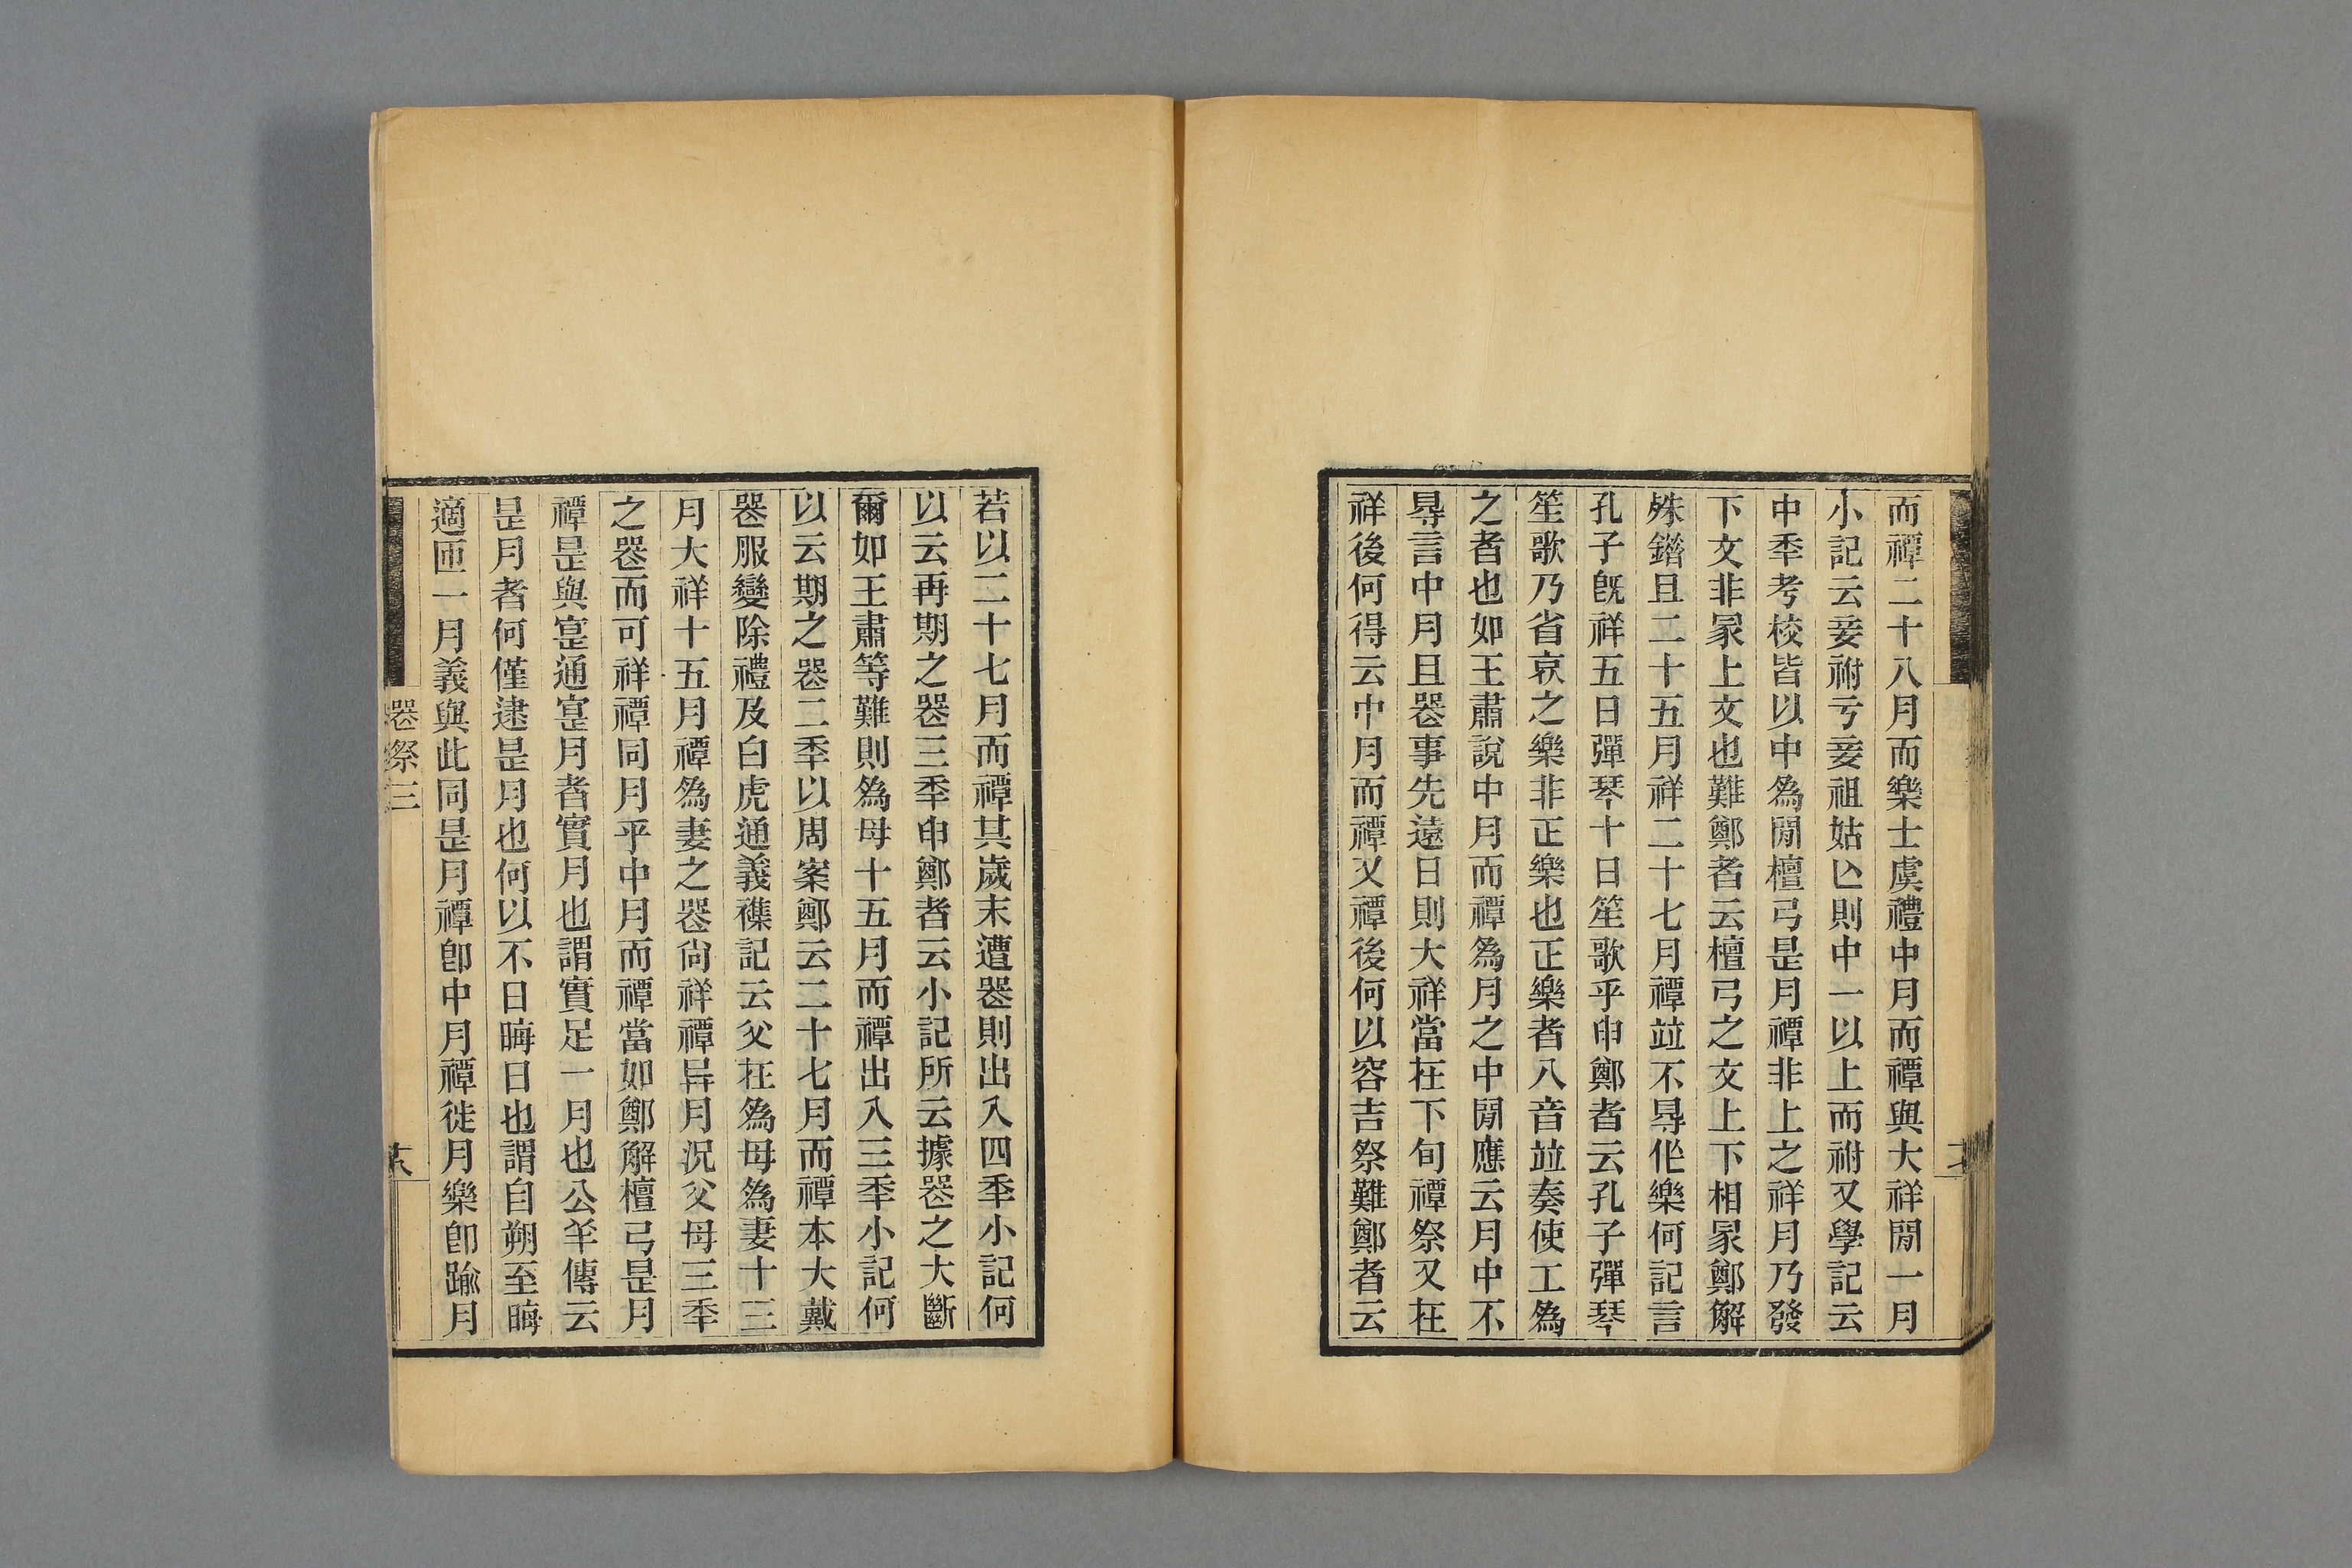 而禫二十八月而樂士虞禮中月而禫與大祥閒一月
小記云妾祔亏妾祖姑亾則中一以上而祔又學記云
中秊考校皆以中爲閒檀弓是月禫非上之祥月乃發
下文非冡上文也難鄭者云檀弓之文上下相冡鄭解
殊鐕且二十五月祥二十七月禫竝不㝵作樂何記言
孔子旣祥五日彈琴十日笙歌乎申鄭者云孔子彈琴
笙歌乃省哀之樂非正樂也正樂者八音竝奏使工爲
之者也如王肅說中月而禫爲月之中閒應云月中不
㝵言中月且喪事先遠日則大祥當在下旬禫祭又在
祥後何得云中月而禫又禫後何以容吉祭難鄭者云
若以二十七月而禫其歲末遭喪則出入四秊小記何
以云再期之喪三秊申鄭者云小記所云據喪之大斷
爾如王肅等難則爲母十五月而禫出入三秊小記何
以云期之喪二秊以周案鄭云二十七月而禫本大戴
喪服變除禮及白虎通義襍記云父在爲母爲妻十三
月大祥十五月禫爲妻之喪尙祥禫异月況父母三秊
之喪而可祥禫同月乎中月而禫當如鄭解檀弓是月
禫是與寔通寔月者實月也謂實足一月也公羊傳云
是月者何僅逮是月也何以不日晦日也謂自朔至晦
適匝一月義與此同是月禫卽中月禫徙月樂卽踰月
喪祭三
十八